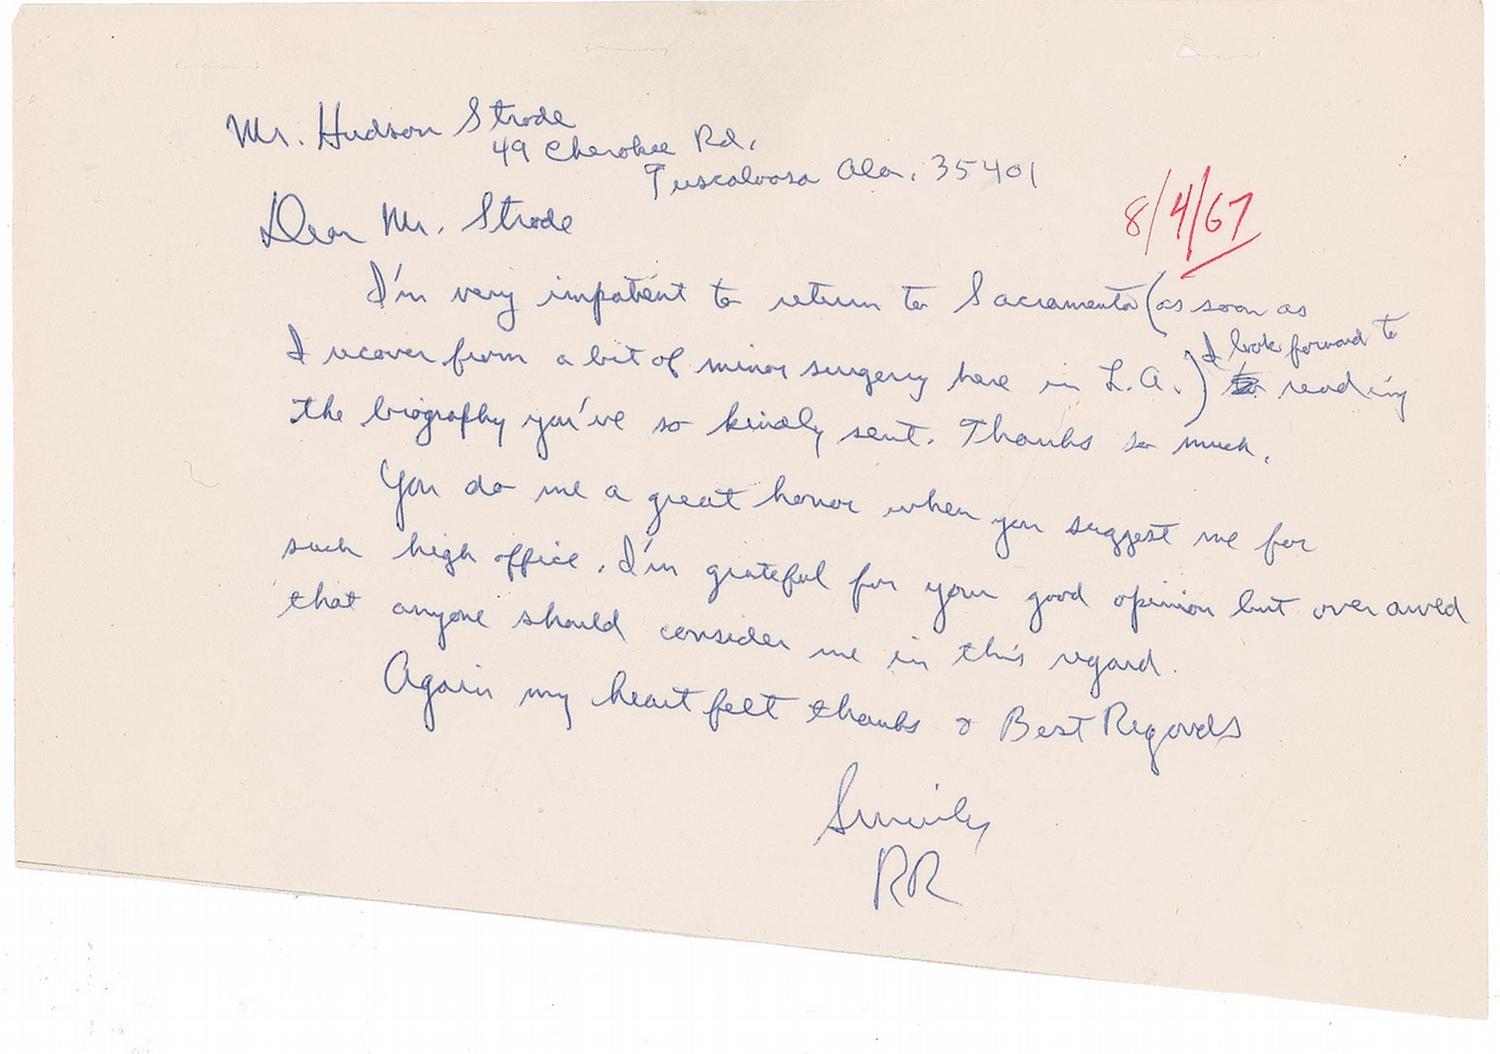 Mr. Hudson Strode
49 Cherokee Rd.
Tuscaloosa Ala. 35401
8/4/67
Dear Mr. Strode
I'm very impatient to return to Sacramento (as soon as
I recover from a bit of minor surgery here in L.A.) I look forward to reading
the biography you've so kindly sent. Thanks so much.
You do me a great honor when you suggest me for
such high office. I'm grateful for your good opinion but over awed
that anyone should consider me in this regard.
Again my heart felt thanks & Best Regards
Sincerely
RR